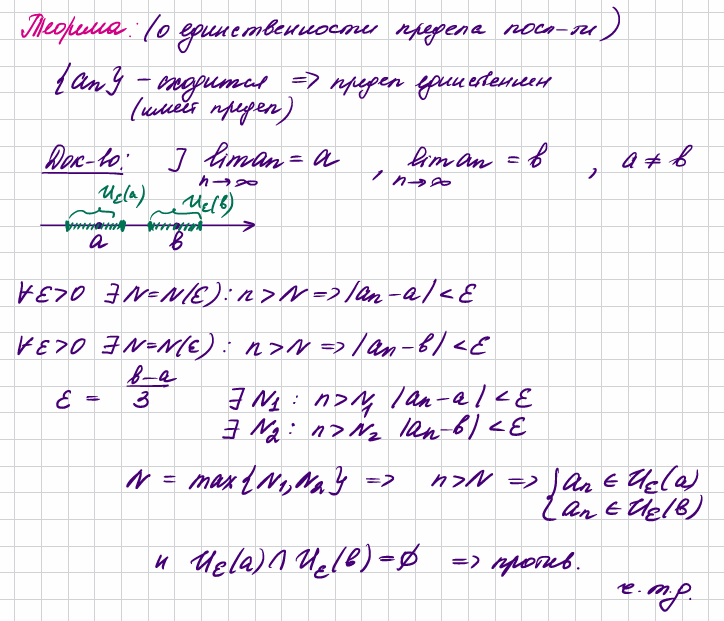 Теорема: (о единственности предела посл-ти)
{an} – сходится => предел единственен
(имеет предел)
Док-во: ] lim an = a , lim an = b , a ≠ b
n→∞ n→∞
Uε(a) Uε(b)
a b
∀ε>0 ∃N=N(ε): n>N => |an-a|<ε
∀ε>0 ∃N=N(ε): n>N => |an-b|<ε
ε = (b-a)/3 ∃N1: n>N1 |an-a|<ε
∃N2: n>N2 |an-b|<ε
N = max{N1,N2} => n>N => {an ∈ Uε(a)
{an ∈ Uε(b)
и Uε(a)∩Uε(b)=∅ => против.
ч.т.д.